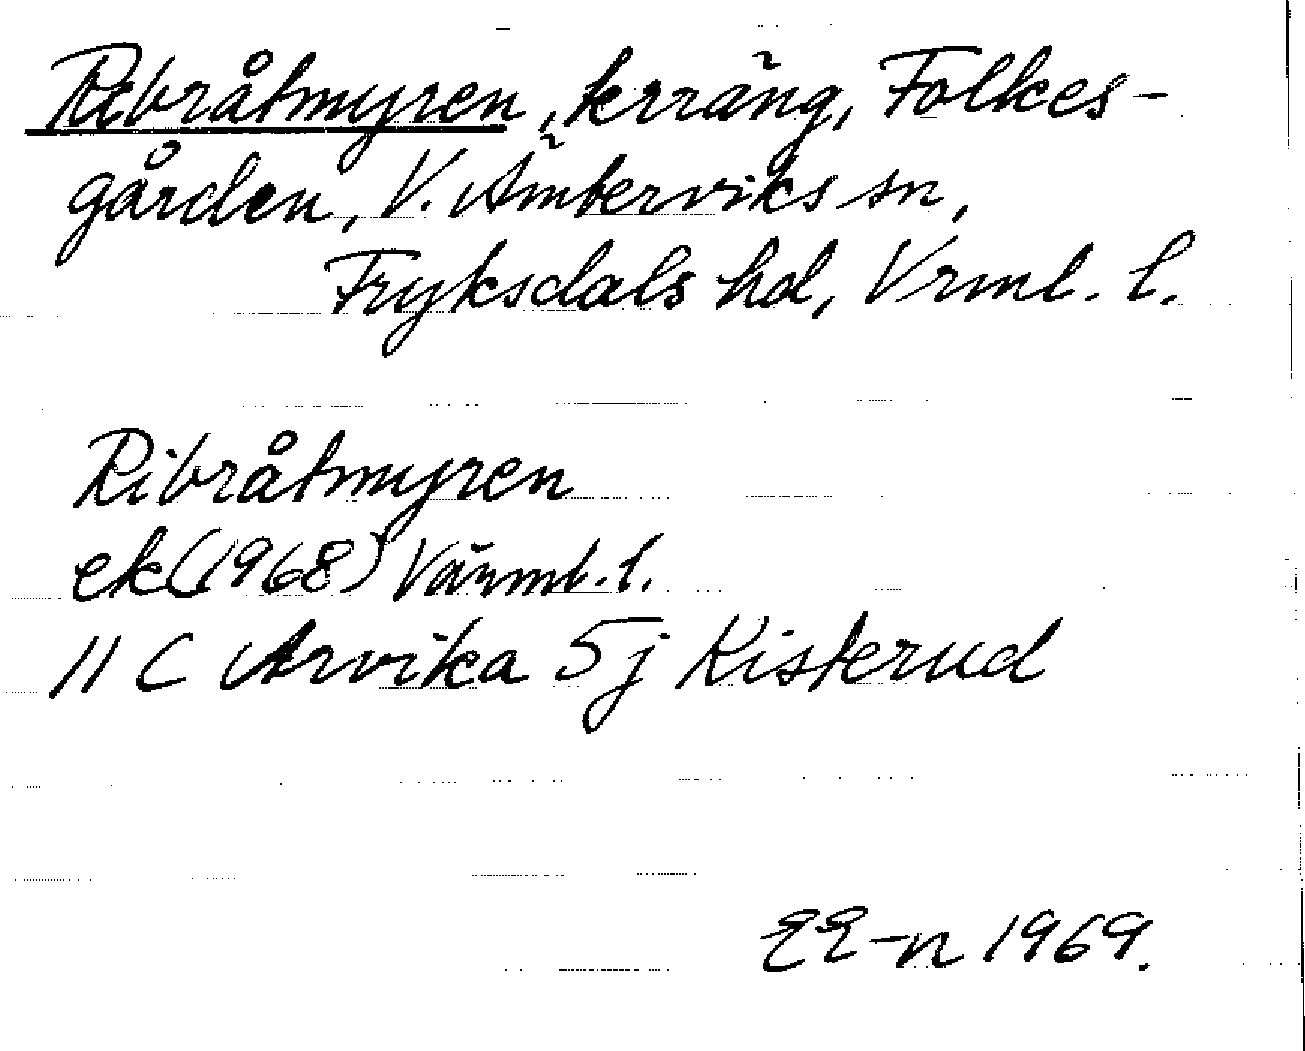 Ribråtmyren, terräng, Folkes-
gården, V. Ämterviks sn,
Fryksdals hd, Vrml. l.
Ribråtmyren
ek (1968) Värml. l.
11 C Arvika 5j Kisterud
EE-n 1969.